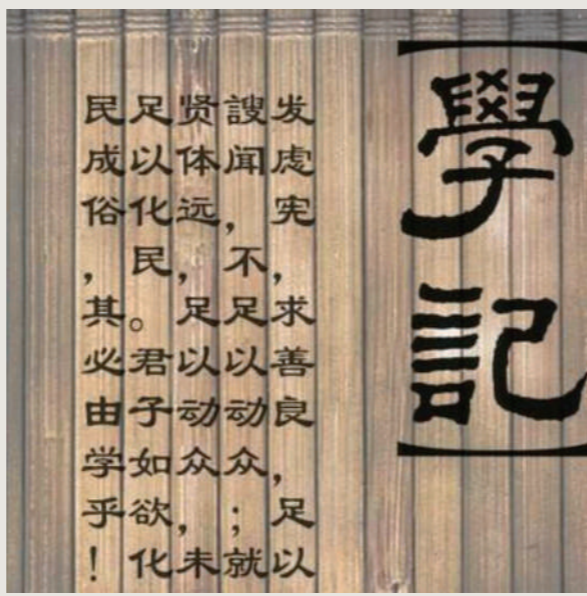 學記
发虑宪，求善良，足以
謏闻，不足以动众；就
贤体远，足以动众，未
足以化民。君子如欲化
民成俗，其必由学乎！